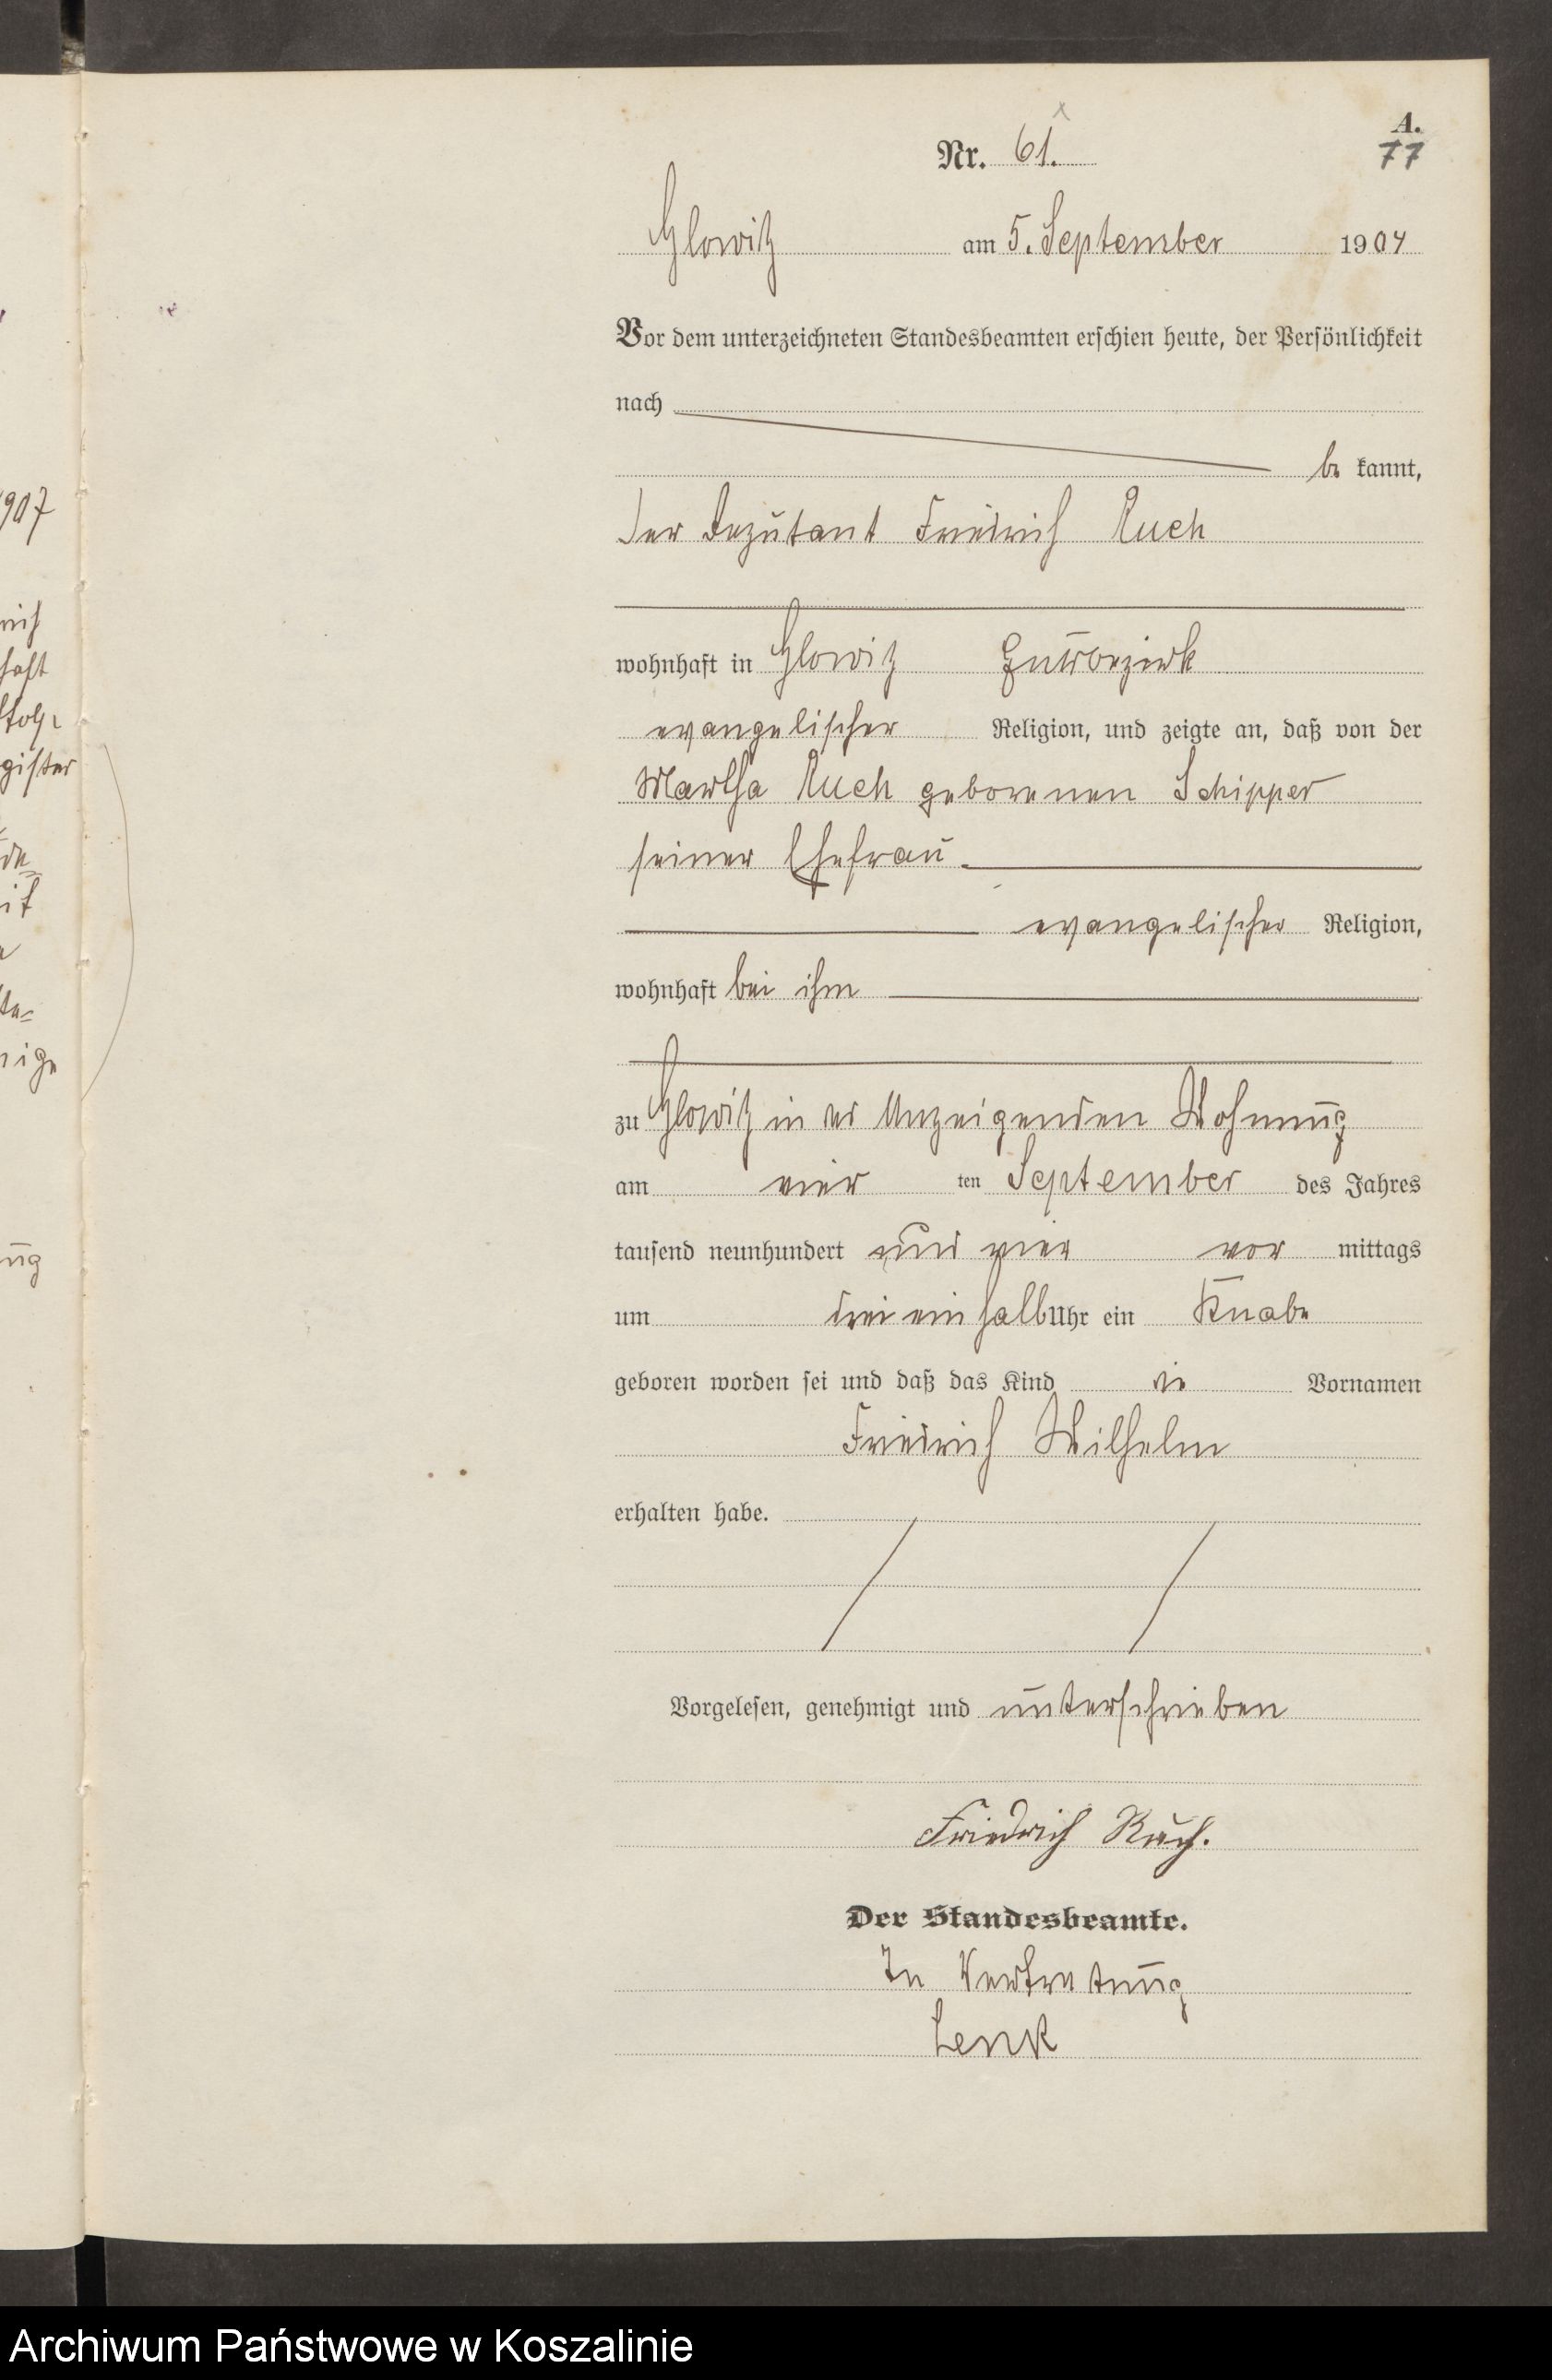 A.
77
Nr. 61.
Glowitz am 5. September 1904
Vor dem unterzeichneten Standesbeamten erschien heute, der Persönlichkeit
nach
be kannt,
der Deputant Friedrich Ruch
wohnhaft in Glowitz Gutsbezirk
evangelischer Religion, und zeigte an, daß von der
Martha Ruch geborenen Schipper
seiner Ehefrau
evangelischer Religion,
wohnhaft bei ihm
zu Glowitz in des Anzeigenden Wohnung
am vier ten September des Jahres
tausend neunhundert und vier vor mittags
um drei ein halb Uhr ein Knabe
geboren worden sei und daß das Kind die Vornamen
Friedrich Wilhelm
erhalten habe.
Vorgelesen, genehmigt und unterschrieben
Friedrich Ruch.
Der Standesbeamte.
In Vertretung
Lenk
907
gister
Archiwum Państwowe w Koszalinie